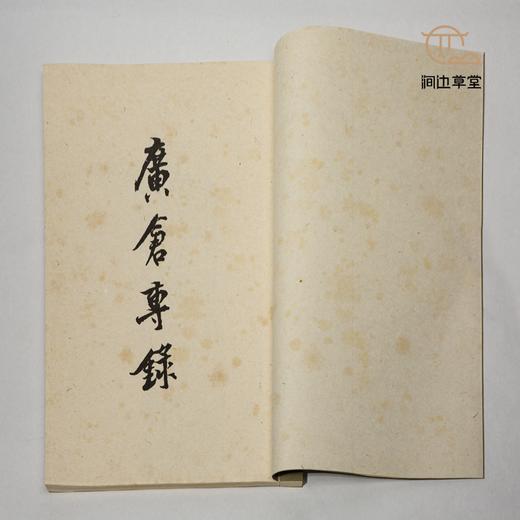 廣倉專錄
涧边草堂